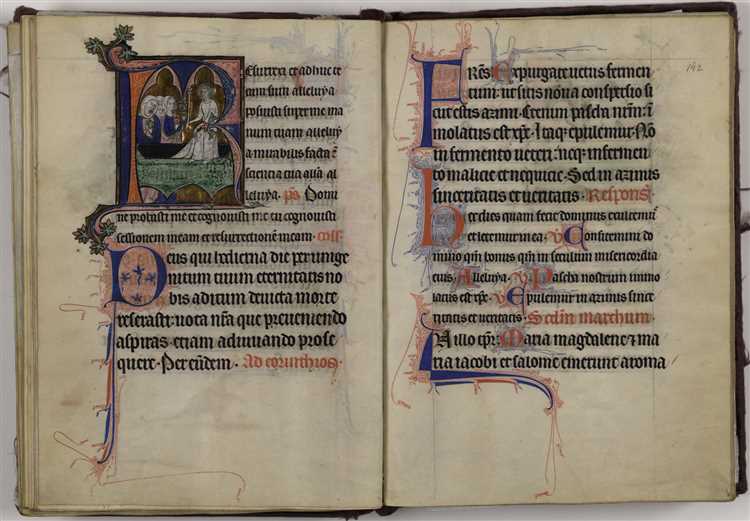 Resurrexi et adhuc te
cum sum alleluya
posuisti super me ma
num tuam alleluy
a mirabilis facta ē
sciencia tua q̄ia al
leluya. p̄s. Domi
ne probasti me et cognovisti me tu cognovisti
sessionem meam et resurrectionē meam. coll'.
Deus qui hodierna die per unige
nitum tuum eternitatis no
bis aditum devicta morte
reserasti: vota n̄ra que preveniendo
aspiras etiam adiuvando prose
quere. Per eūdem. Ad corinthios.
142
Fr̄es. Expurgate vetus fermen
tum: ut sitis nova conspersio si
cut estis azimi. Etenim pascha nr̄m: ī
molatus est xp̄c. Itaq; epulemur. Nō
in fermento veteri: neq; in fermen
to malicie et nequicie. Sed in azimis
sinceritatis et veritatis. Respons'.
Hec dies quam fecit dominus exultemu'
et letemur in ea. v. Confitemini do
mino qm̄ bonus qm̄ in seculum misericordia
eius. Alleluya. v. Pascha nostrum immo
latus est xp̄c. v. Epulemur in azimis since
ritatis et veritatis. Sc̄dm marchum.
In illo tp̄r: Maria magdalene & ma
ria iacobi et salome emerunt aroma